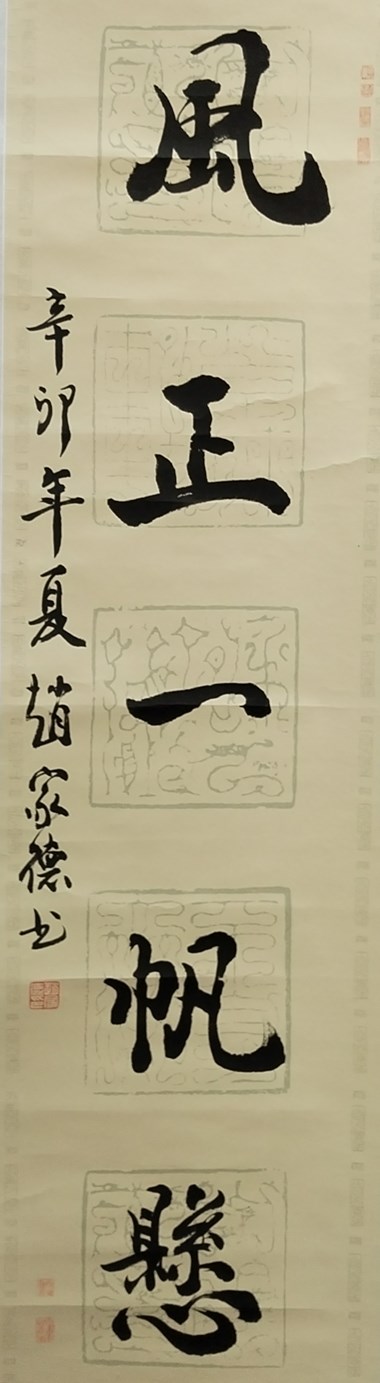 風正一帆懸
辛卯年夏趙家德书